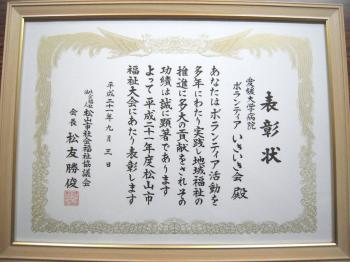 表彰状
愛媛大学病院
ボランティアいきいき会 殿
あなたはボランティア活動を
多年にわたり実践し地域福祉の
推進に多大の貢献をされその
功績は誠に顕著であります
よって平成二十一年度松山市
福祉大会にあたり表彰します
平成二十一年九月三日
社会福祉法人 松山市社会福祉協議会
会長 松友勝俊